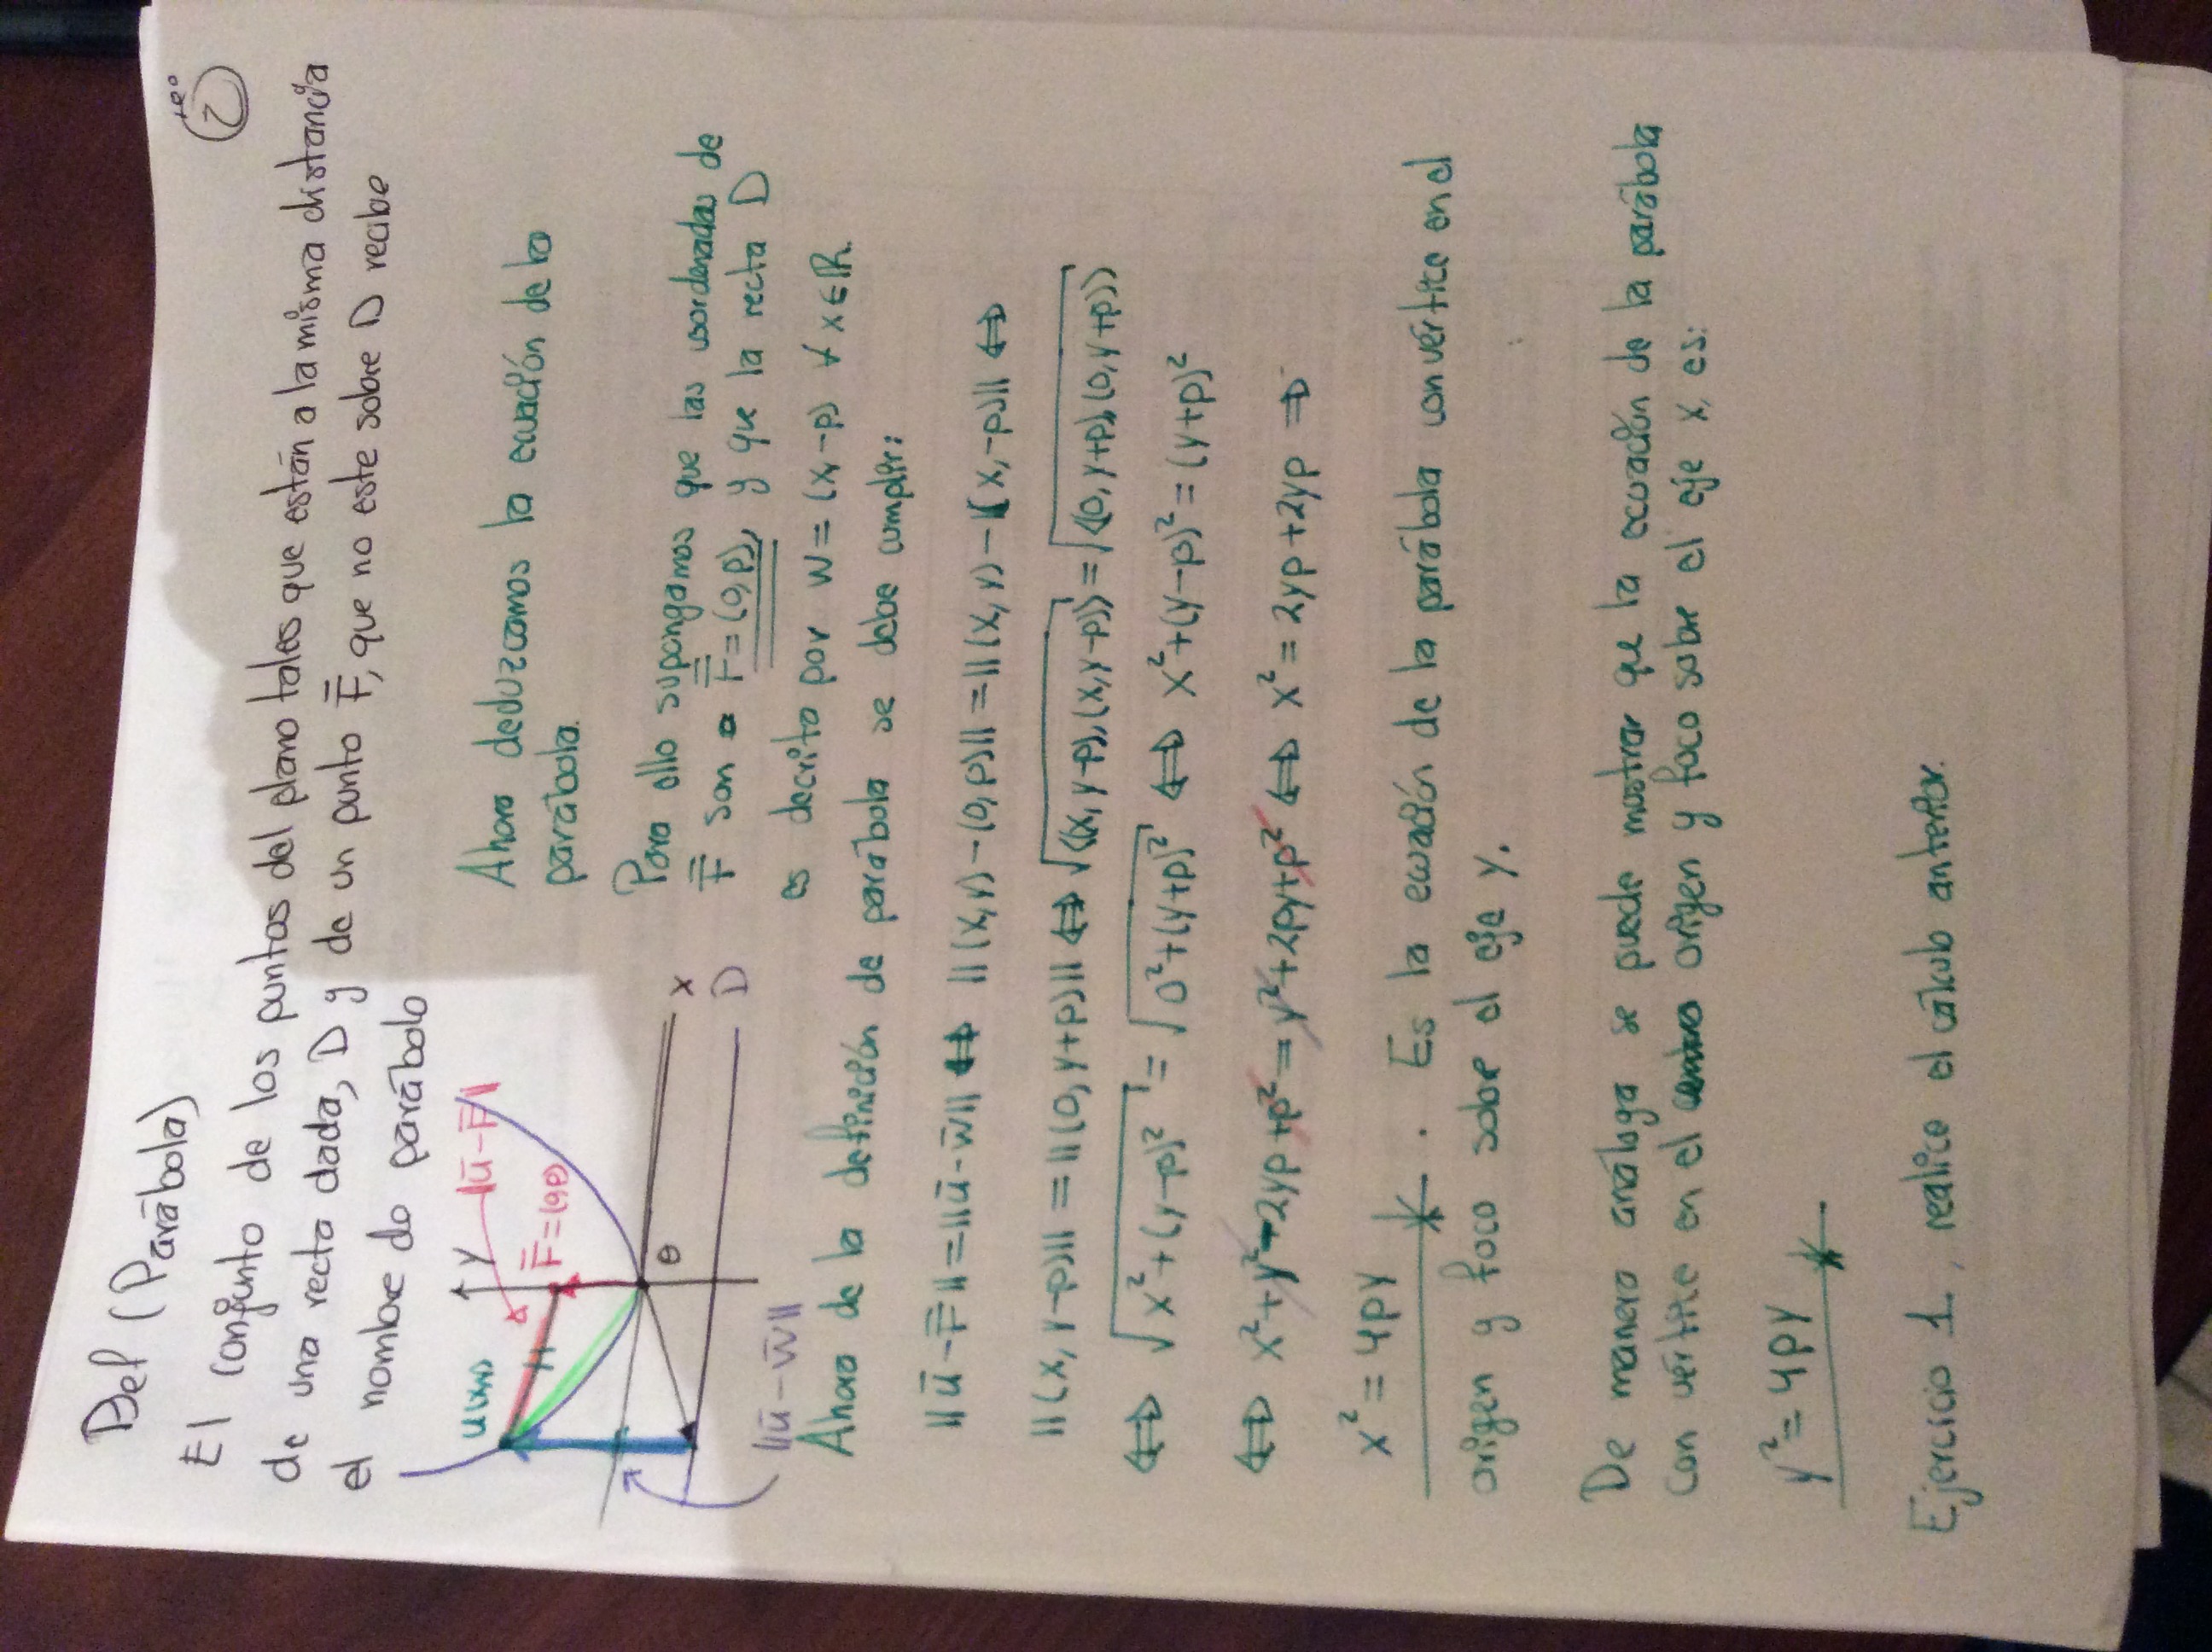 2
Def (Parábola)
El conjunto de los puntos del plano tales que están a la misma distancia
de una recta dada, D y de un punto F̄, que no este sobre D recibe
el nombre de parábola
Y
||ū-F̄||
F̄=(0,p)
x
D
θ
||ū-w̄||
Ahora deduzcamos la ecuación de la
parábola.
Para ello supongamos que las coordenadas de
F̄ son F̄=(0,p), y que la recta D
es decrito por w=(x,-p) ∀ x∈ℝ.
Ahora de la definición de parábola se debe cumplir:
||ū-F̄||=||ū-w̄|| ⟺ ||(x,y)-(0,p)||=||(x,y)-(x,-p)|| ⟺
||(x,y-p)||=||(0,y+p)|| ⟺ √((x,y-p),(x,y-p))=√((0,y+p),(0,y+p))
⟺ √x²+(y-p)²=√0²+(y+p)² ⟺ x²+(y-p)²=(y+p)²
⟺ x²+y²-2yp+p²=y²+2py+p² ⟺ x²=2yp+2yp ⟹
x²=4py. Es la ecuación de la parábola con vértice en el
origen y foco sobre el eje y.
De manera análoga se puede mostrar que la ecuación de la parábola
con vértice en el origen y foco sobre el eje x, es:
y²=4py
Ejercicio 1, realice el cálculo anterior.